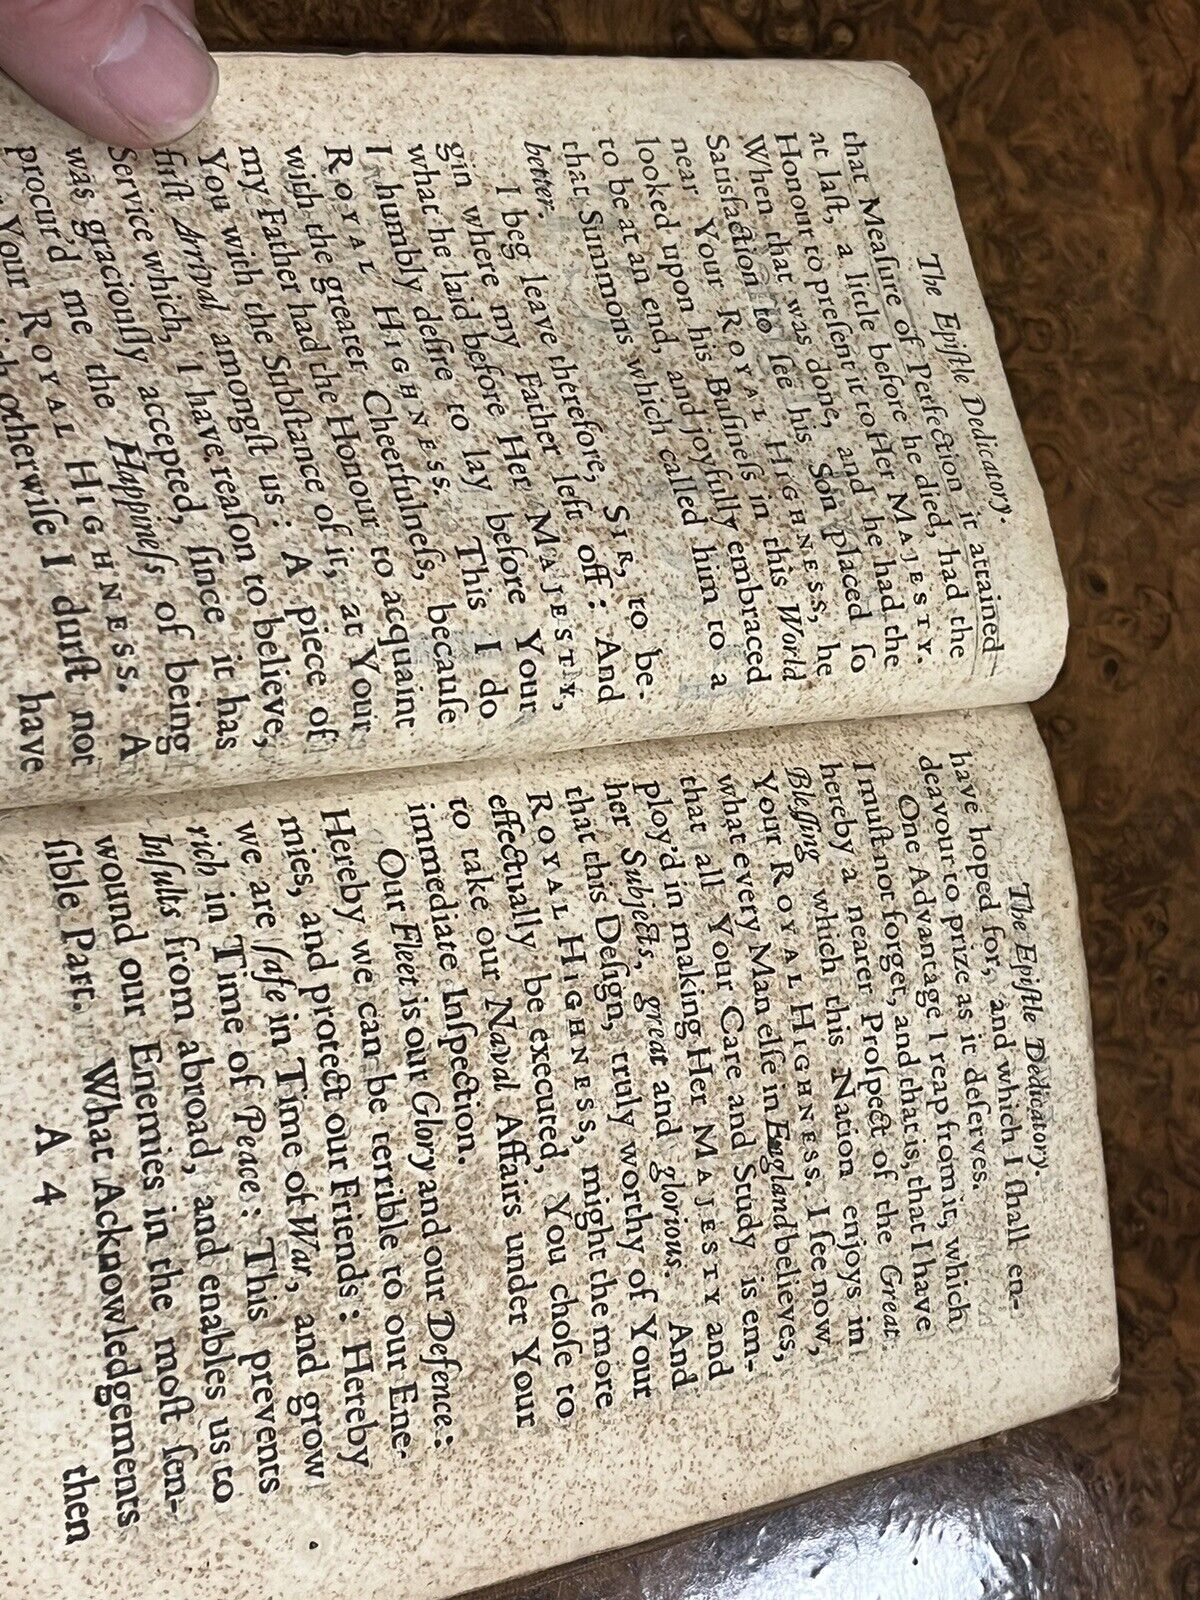 The Epiſtle Dedicatory.
that Meaſure of Perfection it attained
at laſt, a little before he died, had the
Honour to preſent it to Her MAJESTY.
When that was done, and he had the
Satisfaction to ſee his Son placed ſo
near Your ROYAL HIGHNESS, he
looked upon his Buſineſs in this World
to be at an end, and joyfully embraced
that Summons which called him to a
better.
I beg leave therefore, SIR, to be-
gin where my Father left off: And
what he laid before Her MAJESTY,
I humbly deſire to lay before Your
ROYAL HIGHNESS. This I do
with the greater Cheerfulneſs, becauſe
my Father had the Honour to acquaint
You with the Subſtance of it, at Your
firſt Arrival amongſt us: A piece of
Service which, I have reaſon to believe,
was graciouſly accepted, ſince it has
procur'd me the Happineſs of being
Your ROYAL HIGHNESS. A
otherwiſe I durſt not
have
The Epiſtle Dedicatory.
have hoped for, and which I ſhall en-
deavour to prize as it deſerves.
One Advantage I reap from it, which
I muſt not forget, and that is, that I have
hereby a nearer Proſpect of the Great
Bleſſing which this Nation enjoys in
Your ROYAL HIGHNESS. I ſee now,
what every Man elſe in England believes,
that all Your Care and Study is em-
ploy'd in making Her MAJESTY and
her Subjects, great and glorious. And
that this Deſign, truly worthy of Your
ROYAL HIGHNESS, might the more
effectually be executed, You choſe to
to take our Naval Affairs under Your
immediate Inſpection.
Our Fleet is our Glory and our Defence:
Hereby we can be terrible to our Ene-
mies, and protect our Friends: Hereby
we are ſafe in Time of War, and grow
rich in Time of Peace: This prevents
Inſults from abroad, and enables us to
wound our Enemies in the moſt ſen-
ſible Part. What Acknowledgements
A 4
then